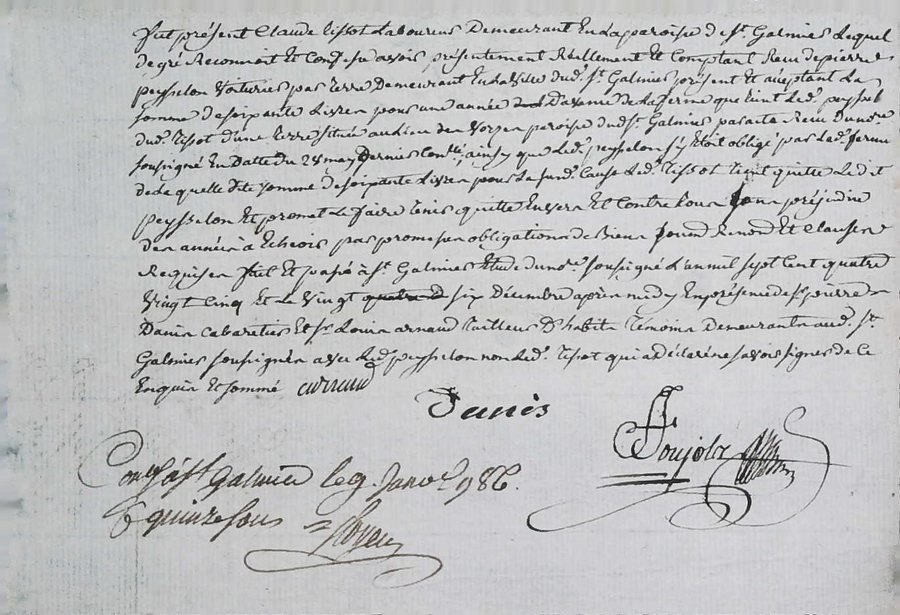 fut présent Claude tissot Laboureur Demeurant En la paroisse de St. Galmier Lequel
de gré Reconnoit Et Confesse avoir présentement Réellement Et Comptant Reçu de pierre
peysselon Voiturier par terre Demeurant En la Ville dud. St. Galmier présent Et acceptant La
somme de soixante Livres pour une année D'avenir de la ferme que tient Led. peysselon
dud. tissot d'une terre située au lieu des paroisse dud. St. Galmier par acte Reçu du no.re
soussigné En Datte du 28 may Dernier Con.lé, ainsy que Led. peysselon s'y étoit obligé par Led. ferme
de la quelle dite somme de soixante Livres pour La susd. Cause Led. tissot tient quitte Ledit
peysselon Et promet Le faire tenir quitte Envers Et Contre tous sans préjudice
des années à Echeoir par promesses obligations de Biens soum.d Renond Et Clauses
Requises fait Et passé à St. Galmier Etude du no.re soussigné L'an mil sept Cent quatre
Vingt Cinq Et Le Vingt six Décembre après midy En présence de Sr. pierre
Danis cabaretier Et Sr. Louis arnaud tailleur D'habits témoins Demeurants aud. St.
Galmier soussignés avec Led. peysselon non Led. tissot qui a déclaré ne savoir signer de ce
Enquis Et sommé
Danis
Con.lé à St. Galmier le 9. Janv.r 1786.
quinze sous